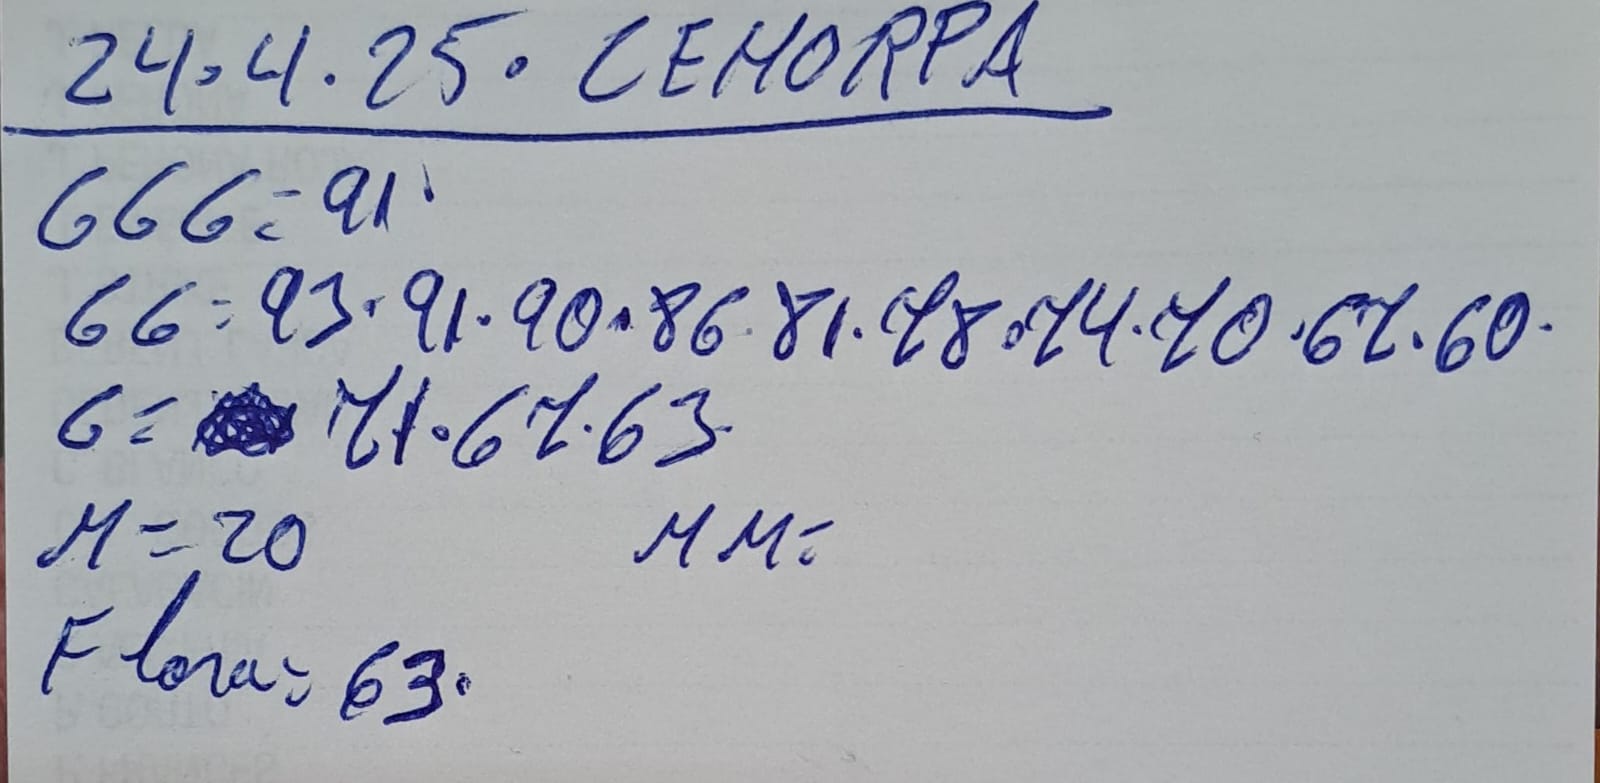 24.4.25. CEMORPA
GGG=91.
GG=93.91.90.86.81.78.74.70.67.60.
G= 71.67.63.
M=20 MM=
Flora=63.